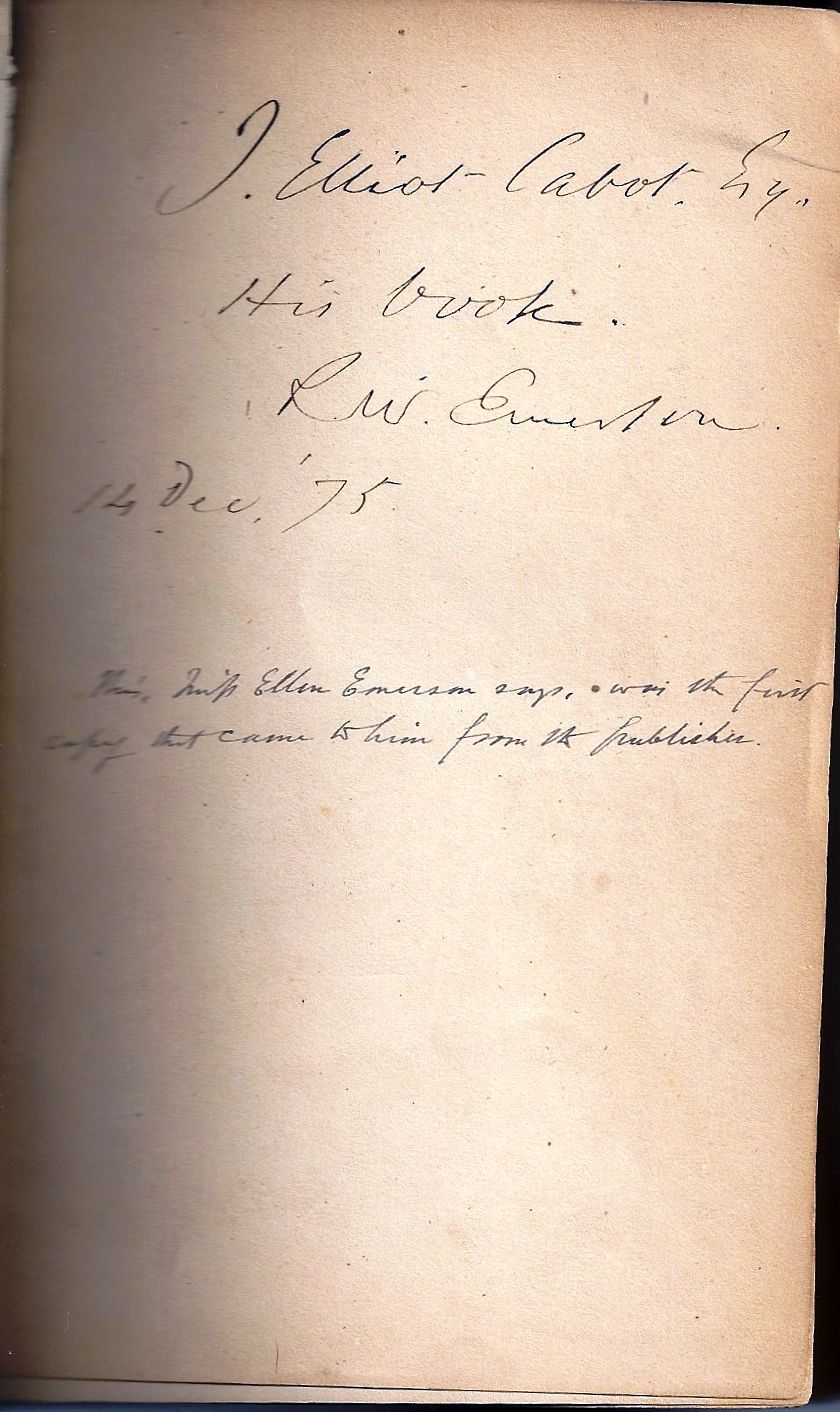 J. Elliot Cabot, Esq.
His book.
R. W. Emerson.
14 Dec. '75.
This, Miss Ellen Emerson says, was the first
copy that came to him from the publisher.